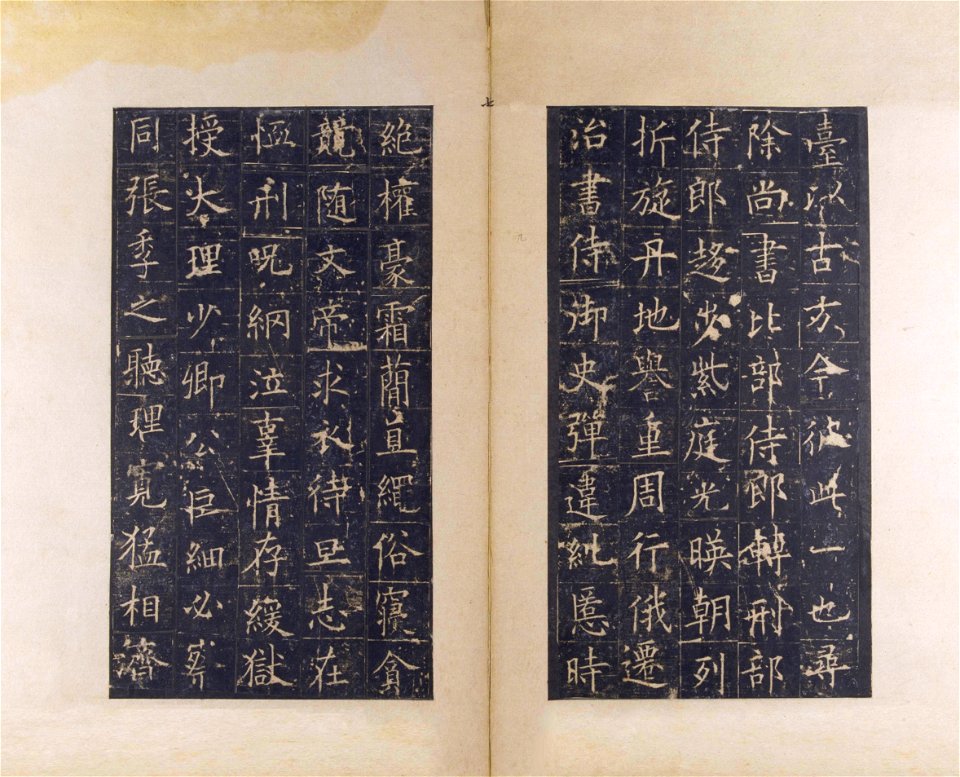 臺以古方今彼此一也尋
除尚書比部侍郎轉刑部
侍郎趍步紫庭光暎朝列
折旋丹地譽重周行俄遷
治書侍御史彈違糺慝時
絶權豪霜蕳直繩俗寢貪
競随文帝求衣待旦志在
恤刑呪網泣辜情存緩獄
授大理少卿公巨細必察
同張季之聽理寬猛相濟